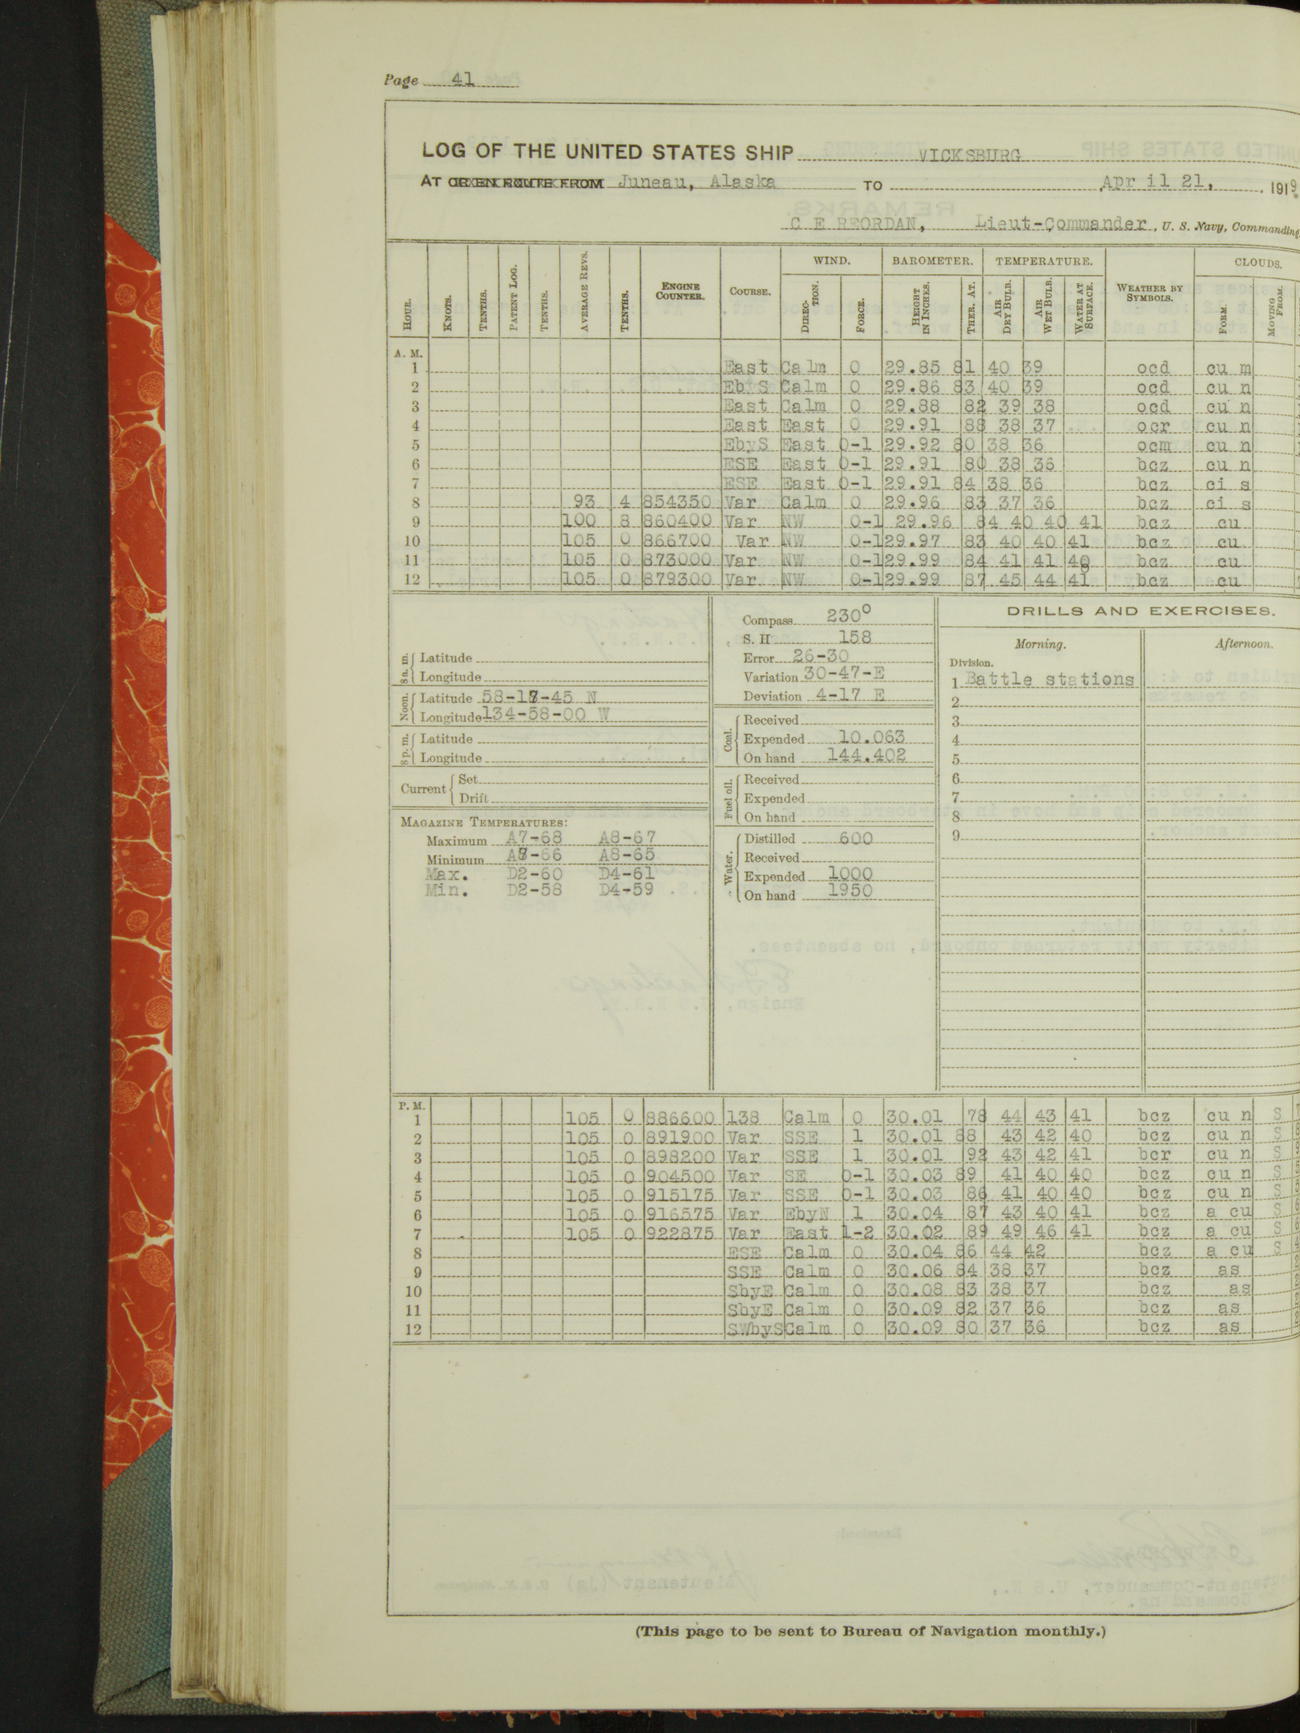 Page 41
LOG OF THE UNITED STATES SHIP VICKSBURG
AT OR EN ROUTE FROM Juneau, Alaska TO April 21, 1919
C E REORDAN, Lieut-Commander, U. S. Navy, Commanding
HOUR. KNOTS. TENTHS. PATENT LOG. TENTHS. AVERAGE REVS. TENTHS. ENGINE COUNTER. COURSE. WIND. DIRECTION. FORCE. BAROMETER. HEIGHT IN INCHES. THER. AT. TEMPERATURE. AIR DRY BULB. AIR WET BULB. WATER AT SURFACE. WEATHER BY SYMBOLS. CLOUDS. FORM. MOVING FROM.
A. M.
1 East Calm 0 29.85 81 40 39 ocd cu m
2 EbyS Calm 0 29.86 83 40 39 ocd cu n
3 East Calm 0 29.88 82 39 38 ocd cu n
4 East East 0 29.91 88 38 37 ocr cu n
5 EbyS East 0-1 29.92 80 38 36 ocm cu n
6 ESE East 0-1 29.91 80 38 36 bcz cu n
7 ESE East 0-1 29.91 84 38 36 bcz ci s
8 93 4 854350 Var Calm 0 29.96 83 37 36 bcz ci s
9 100 8 860400 Var NW 0-1 29.96 84 40 40 41 bcz cu
10 105 0 866700 Var NW 0-1 29.97 83 40 40 41 bcz cu
11 105 0 873000 Var NW 0-1 29.99 84 41 41 40 bcz cu
12 105 0 879300 Var NW 0-1 29.99 87 45 44 41 bcz cu
8 a. m. Latitude
Longitude
Noon. Latitude 58-17-45 N
Longitude 134-58-00 W
8 p. m. Latitude
Longitude
Current Set
Drift
MAGAZINE TEMPERATURES:
Maximum A7-68 A8-67
Minimum A7-66 A8-65
Max. D2-60 D4-61
Min. D2-58 D4-59
Compass 230°
S. H 158
Error 26-30
Variation 30-47-E
Deviation 4-17 E
Coal. Received
Expended 10.063
On hand 144.402
Fuel oil. Received
Expended
On hand
Water. Distilled 600
Received
Expended 1000
On hand 1950
DRILLS AND EXERCISES.
Morning. Afternoon.
Division.
1 Battle stations
2
3
4
5
6
7
8
9
P. M.
1 105 0 886600 138 Calm 0 30.01 78 44 43 41 bcz cu n S
2 105 0 891900 Var SSE 1 30.01 88 43 42 40 bcz cu n S
3 105 0 898200 Var SSE 1 30.01 92 43 42 41 bcr cu n S
4 105 0 904500 Var SE 0-1 30.03 89 41 40 40 bcz cu n S
5 105 0 915175 Var SSE 0-1 30.03 86 41 40 40 bcz cu n S
6 105 0 916575 Var EbyN 1 30.04 87 43 40 41 bcz a cu S
7 105 0 922875 Var East 1-2 30.02 89 49 46 41 bcz a cu S
8 ESE Calm 0 30.04 86 44 42 bcz a cu S
9 SSE Calm 0 30.06 84 38 37 bcz as
10 SbyE Calm 0 30.08 83 38 37 bcz as
11 SbyE Calm 0 30.09 82 37 36 bcz as
12 SWbyS Calm 0 30.09 80 37 36 bcz as
(This page to be sent to Bureau of Navigation monthly.)